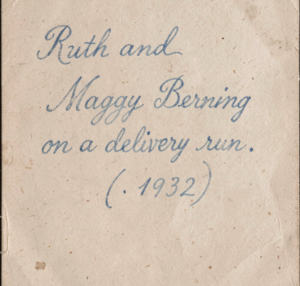 Ruth and
Maggy Berning
on a delivery run.
(. 1932)